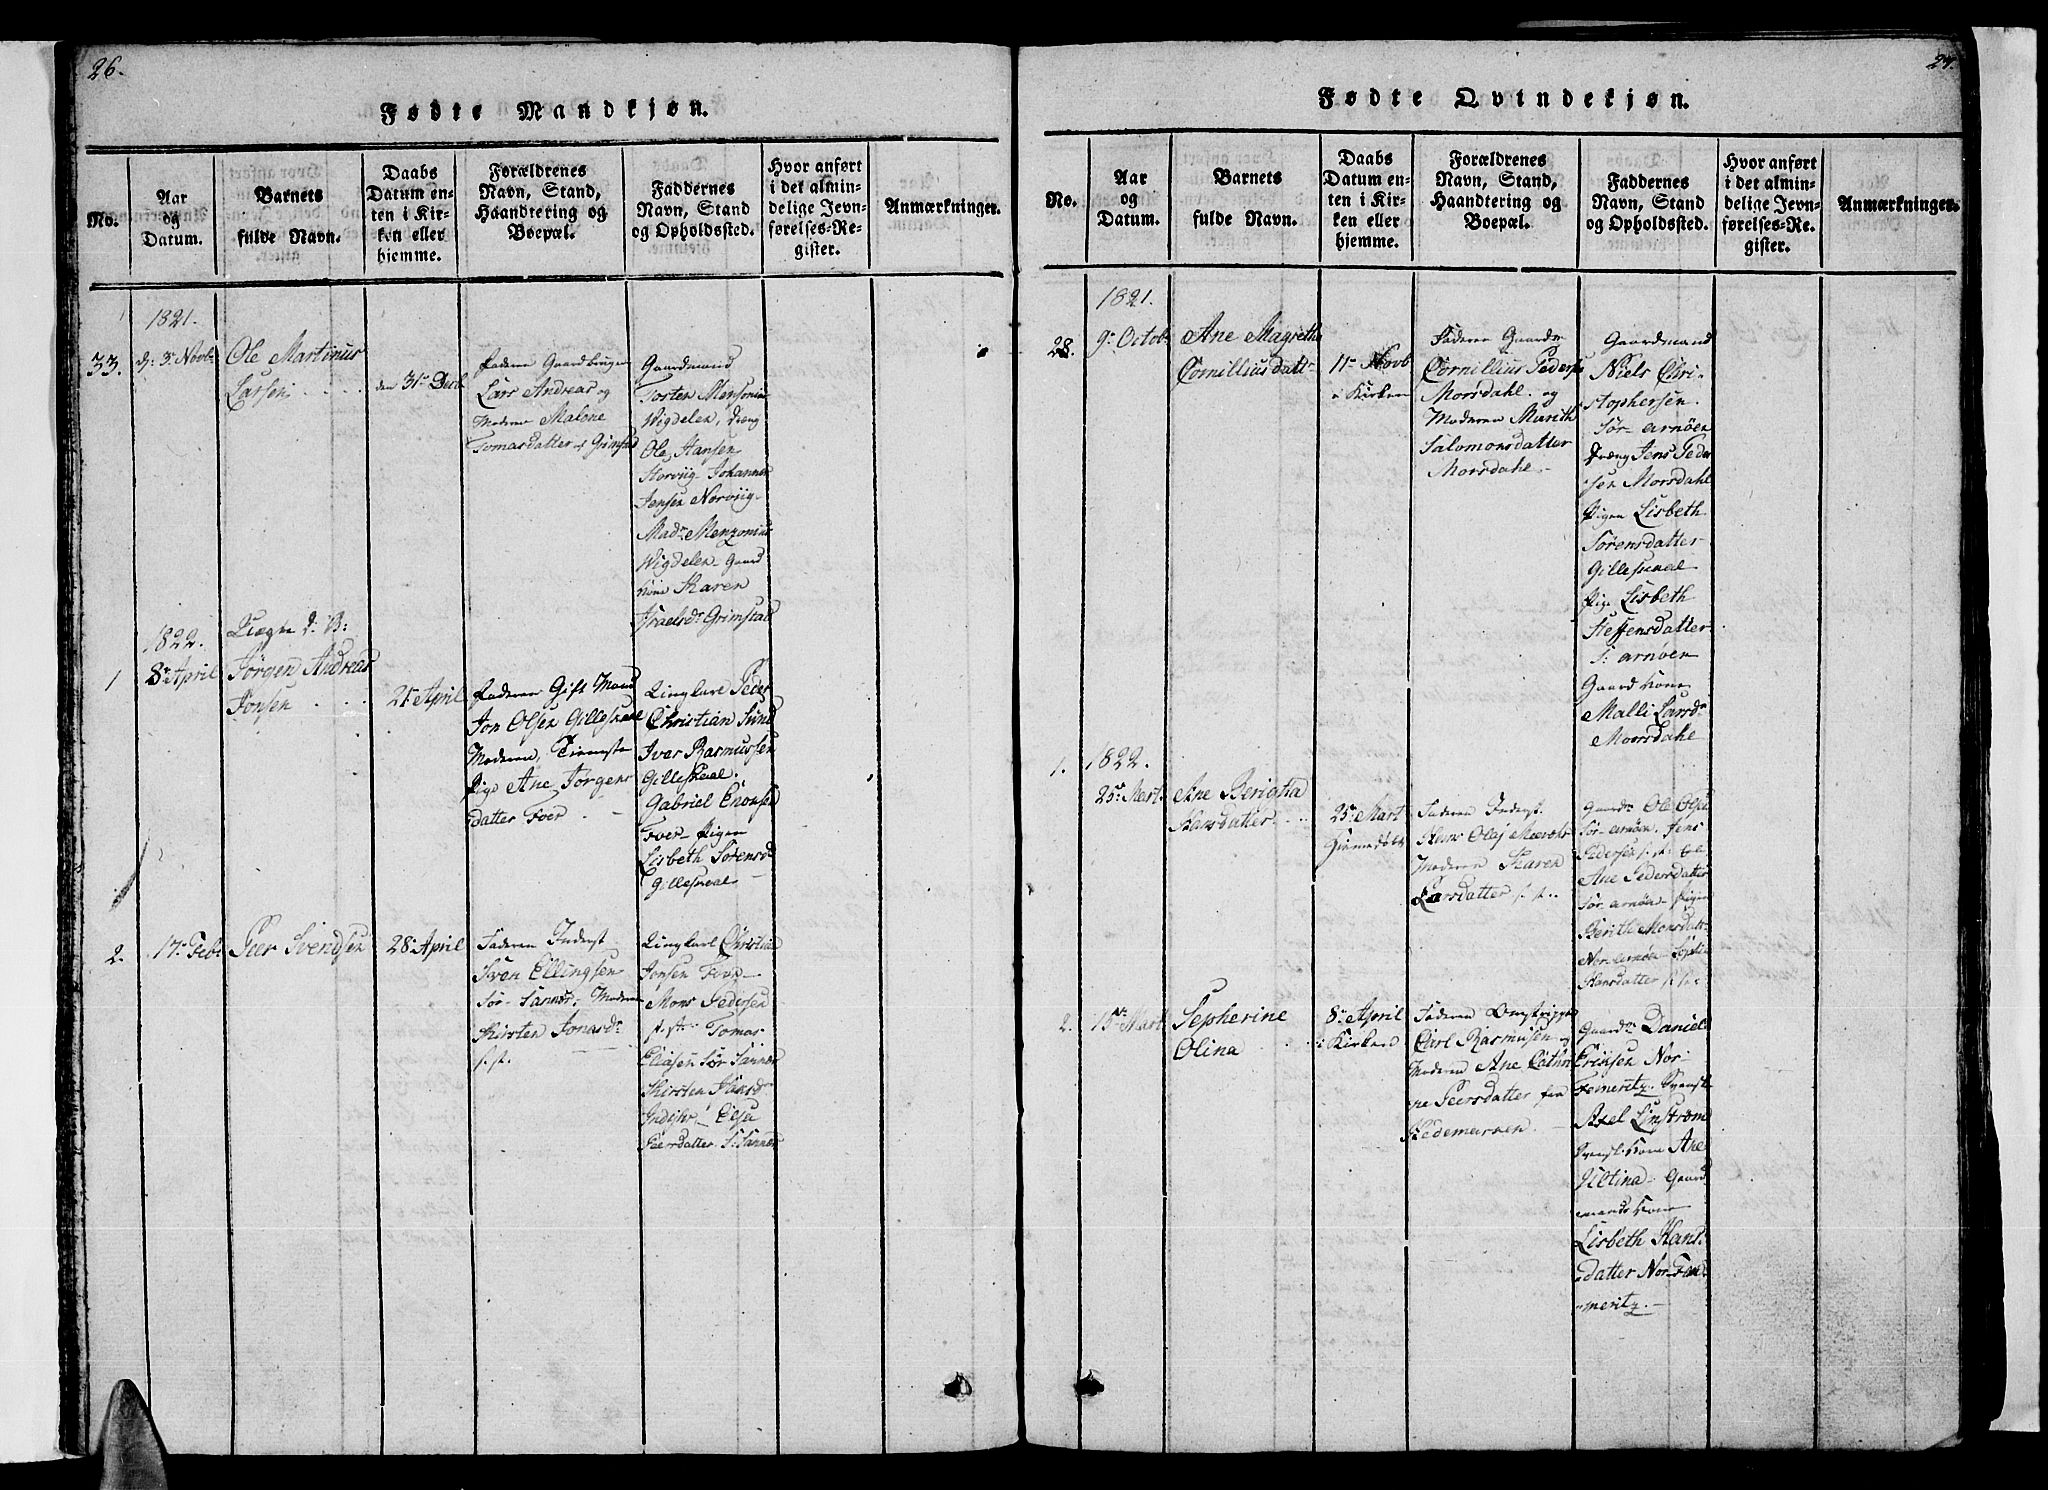 26.
Fødte Mandkjøn.
No.
Aar
og
Datum.
Barnets
fulde Navn.
Daabs
Datum en-
ten i Kir-
ken eller
hjemme.
Forældrenes
Navn, Stand,
Haandtering og
Boepæl.
Faddernes
Navn, Stand
og Opholdssted.
Hvor anført
i det almin-
delige Jevn-
førelses-Re-
gister.
Anmærkninger.
1821.
33.
d: 3 Novb
Ole Martinus
Larsen
den 31te Decb
Faderen Gaardbruger
Lars Andreas og
Moderen Malene
Tomasdatter Grimstad
Gaardmand
Torsten
Wigdelen, Dræng
Ole Hansen
Storviig Johannes
Jensen Norviig
Madm Menzonius
Wigdelen Gaard
kone Karen
Israelsd: Grimstad
1822.
1
8de April
Uægte d: B:
Jörgen Andreas
Jonsen
21 April
Faderen Gift Mand
Jon Olsen Gillesskaal
Moderen, Tieneste
Pige Ane Jörgens
datter Foer
Ungkarl Peder
Christian Sund
Iver Rasmussen
Gilleskaal.
Gabriel Enoksen
Foer Pigen
Lisbeth Sörensd
Gilleskaal
2.
17 Feb
Peer Svendsen
28 April
Faderen Inderst
Sven Ellingsen
Sör Sannes, Moderen
Kirsten Jonasdr
s. st.
Ungkarl Christian
Jonsen Foer
Mons Pedersen
s. st. Tomas
Eliasen Sör Sannes
Kirsten Hansd
Elsa
Peersdatter S: Sannes
27.
Fødte Qvindekjøn.
No.
Aar
og
Datum.
Barnets
fulde Navn.
Daabs
Datum en-
ten i Kir-
ken eller
hjemme.
Forældrenes
Navn, Stand,
Haandtering og
Boepæl.
Faddernes
Navn, Stand
og Opholdssted.
Hvor anført
i det almin-
delige Jevn-
førelses-Re-
gister.
Anmærkninger.
1821.
28.
9: Octob
Ane Magretha
Cornilliusdatt
11te Novb
i Kirken
Faderen Gaardm
Cornillius Peders
Morsdahl. og
Moderen Marith
Salomonsdatter
Morsdahl.
Gaardsmand
Niels Chri-
stophersen
Sör-arnöen
Dræng Jens Peder
sen Morsdahl
Pigen Lisbeth
Sörensdatter
Gilleskaal
Pige Lisbeth
Steffensdatter
S: arnöen
Gaardkone
Malli Larsdr
Morsdahl
1.
1822.
25de Mart
Ane Berigtha
Hansdatter
25de Mart
Hiemmedöbt
Faderen Inderst.
Hans Olaj
Moderen Karen
Larsdatter s. st.
Gaardm Ole Olsen
Sör arnöen. Jens
Pedersen s. st.
Ane Pedersdatter
Sör arnöen Pigen
Berith Monsdatt-
Nordarnöen Sophia
Hansdatter s. st.
2.
15de Mart
Sepherine
Olina
8de April
i Kirken
Faderen
Carl Rasmusen og
Moderen Ane Cathri
ne Peersdatter fra
Hedemarken
Gaardm Daniel
Eriksen Nor-
Femeritz. Svensk
Axel Linström
Svensk kone Ane
Gaard
mands kone
Lisbeth Hans-
datter Nor-Fem
meritz.